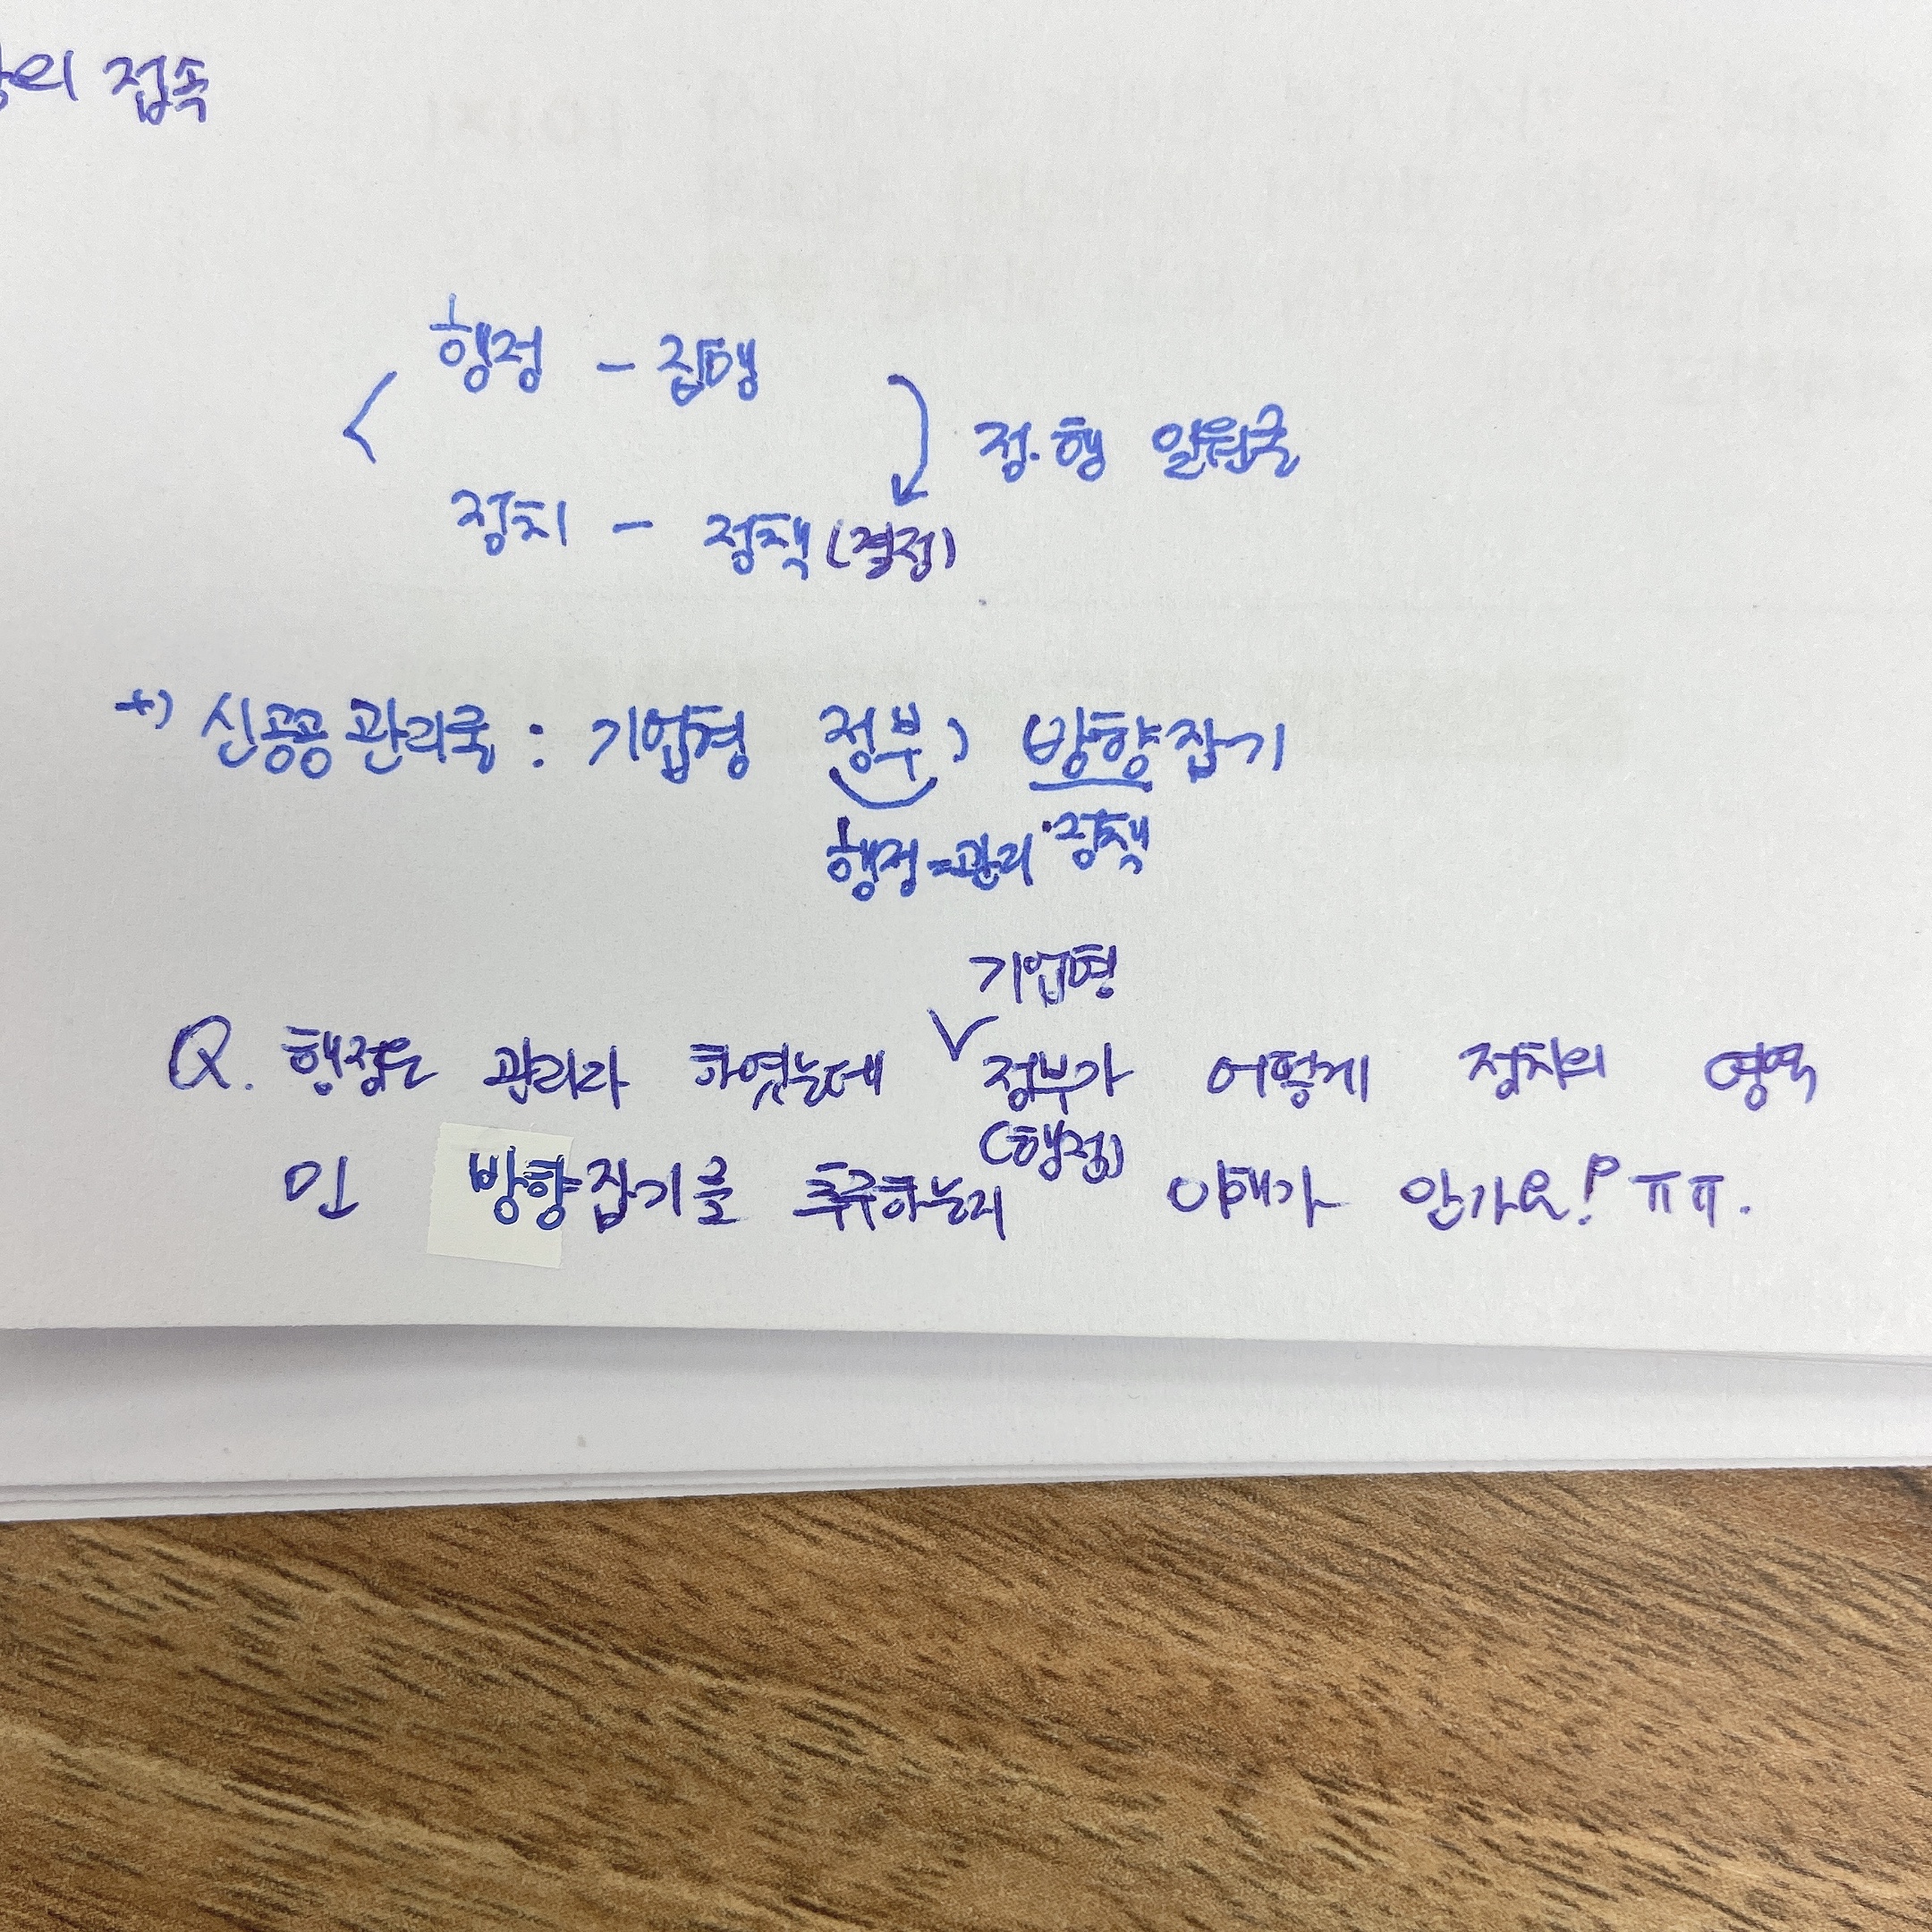 의 접속
행정 - 집행
정·행 일원론
정치 - 정책(결정)
+) 신공공관리론 : 기업형 정부, 방향잡기
행정=관리 정책
기업형
Q. 행정은 관리라 하였는데 정부가 어떻게 정치의 영역
(행정)
인 방향잡기를 추구하는지 이해가 안가요! ㅠㅠ.